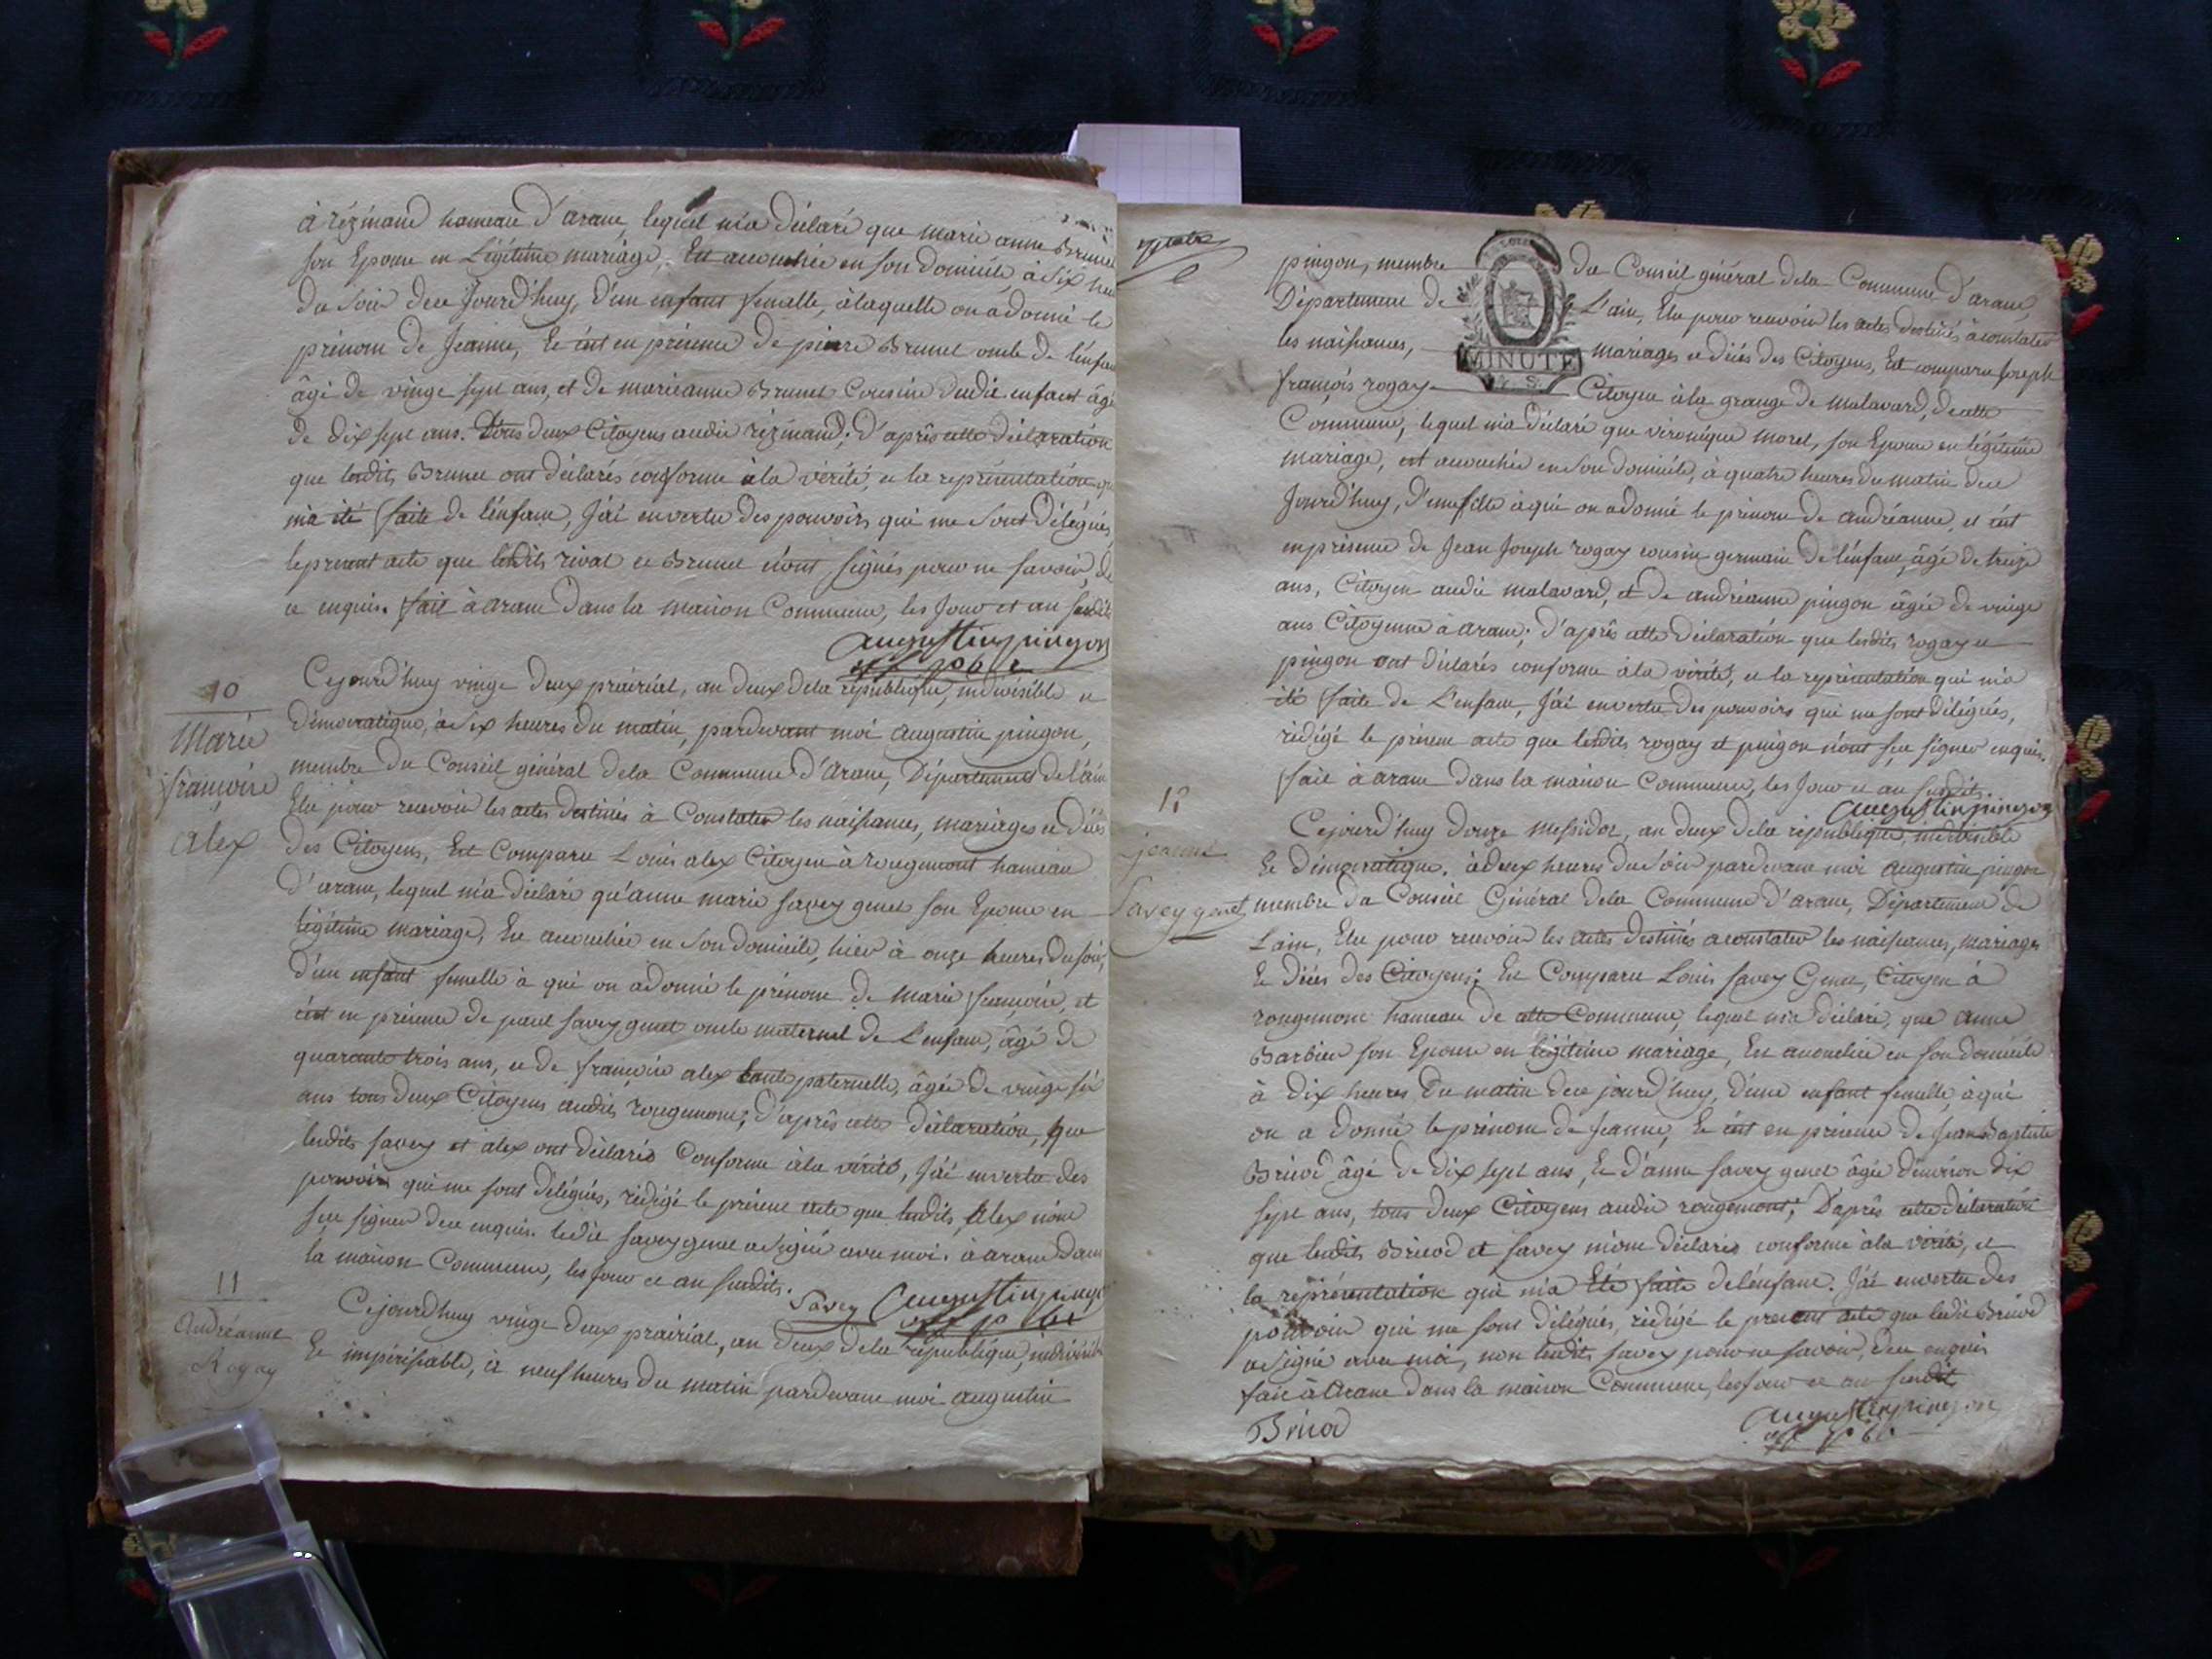 à rézinand hameau d'arane, lequel m'a déclaré que marie anne Brunet
son Epouse en Légitime mariage, Est accouchée en son domicile, à six heu
du soir dece Jourd'huy, d'un enfant femelle, àlaquelle on a donné le
prénom de Jeanne, Ee c'est en présence de pierre Brunet oncle de l'enfan
âgé de vingt sept ans, et de marieanne Brunet Cousine dudit enfant âgé
de dix sept ans. Tous deux Citoyens audit rézinand; d'après cette déclaration
que lesdits Brunet ont déclarés conforme àla vérité, et la représentation qui
m'a été faite de l'enfant, J'ai envertu des pouvoirs qui me sont délégués,
leprésent acte que lesdits rival et Brunet n'ont signés pour ne savoir, de
ce enquis. fait à arane Dans la maison Commune, les Jour et an susdits
augustinpingon
off. pob.
10
Marie
françoise
alex
Cejourd'huy vingt deux prairial, an deux dela république, indivisible et
démocratique, à six heures du matin, pardevant moi augustin pingon,
membre du Conseil général dela Commune d'Arane, Département de l'ain
Elu pour recevoir les actes destinés à Constater les naissances, mariages et décès
des Citoyens, Est Comparu Louis alex Citoyen à rougemont hameau
d'arane, lequel m'a déclaré qu'anne marie savey genet son Epouse en
légitime mariage, Est accouchée en son domicile, hier à onze heures du soir,
d'un enfant femelle à qui on a donné le prénom de marie françoise, et
c'est en présence de paul savey genet oncle maternel de L'enfant, âgé de
quarante trois ans, et de françoise alex tante paternelle, âgée de vingt six
ans tous deux Citoyens audit rougemont; d'après cette déclaration, que
lesdits savey et alex ont déclarés Conforme àla vérité, J'ai envertu des
pouvoirs qui me sont délégués, rédigé le présent acte que lesdits Alex n'ont
sçu signer dece enquis. ledit savey genet a signé avec moi. à arane dans
la maison Commune, les jour et an susdits.
Savey augustinpingo
off. pob.
11
Andréanne
Rogay
Cejourd'huy vingt deux prairial, an deux dela république, indivisible
Et impérissable, à neuf heures du matin pardevant moi augustin
quatre
MINUTE
pingon, membre du Conseil général dela Commune d'arane,
Département de L'ain, Elu pour recevoir les actes destinés àconstater
les naissances, mariages et décès des Citoyens, Est comparu Joseph
françois rogay Citoyen àla grange de malavard, decette
Commune, lequel m'a déclaré que véronique morel, son Epouse en légitime
mariage, est accouchée en son domicile, à quatre heures du matin dece
Jourd'huy, d'une fille à qui on adonné le prénom de andréanne, et c'est
enprésence de Jean Joseph rogay cousin germain de l'enfant, âgé de treize
ans, Citoyen audit malavard, et de andréanne pingon âgée de vingt
ans Citoyenne à arane; d'après cette déclaration que lesdits rogay et
pingon ont déclarés conforme àla vérité, et la représentation qui m'a
été faite de L'enfant, J'ai envertu des pouvoirs qui me sont délégués,
rédigé le présent acte que lesdits rogay et pingon n'ont sçu signer enquis.
fait à arane dans la maison Commune, les Jour et an susdits.
augustinpingon
12
jeanne
Savey genet
Cejourd'huy douze messidor, an deux dela république, indivisible
Et démocratique, à deux heures du soir pardevant moi augustin pingon
membre du Conseil Général dela Commune d'arane, Département de
L'ain, Elu pour recevoir les actes destinés aconstater les naissances, mariages
Et décès des Citoyens; Est Comparu Louis savey Genet, Citoyen à
rougemont hameau de cette Commune, lequel m'a déclaré, que anne
Barbier son Epouse en légitime mariage, Est accouchée en son domicile
à dix heures du matin dece jourd'huy, d'une enfant femelle, à qui
on a donné le prénom de Jeanne, Et c'est en présence de Jean Baptiste
Bricod âgé de dix sept ans, Et d'anne savey genet âgée d'environ dix
sept ans, tous deux Citoyens audit rougemont; D'après cette déclaration
que lesdits Bricod et savey m'ont déclarés conforme àla vérité, et
la représentation qui m'a Eté faite de l'enfant. J'ai envertu des
pouvoirs qui me sont délégués, rédigé le présent acte que ledit Bricod
asigné avec moi, non lesdits savey pour ne savoir, dece enquis
fait à Arane dans la maison Commune, les jour et an susdit
augustinpingon
off. pob.
Bricod